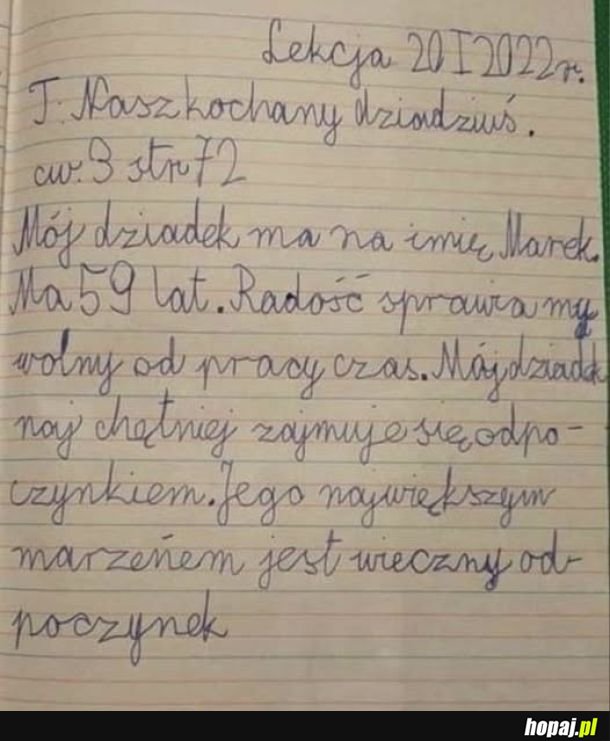 Lekcja 20 I 2022r.
T: Nasz kochany dziadziuś.
ćw. 3 str 72
Mój dziadek ma na imię Marek.
Ma 59 lat. Radość sprawia my
wolny od pracy czas. Mój dziadek
naj chętniej zajmuje się odpo-
czynkiem. Jego największym
marzeńem jest wieczny od-
poczynek
hopaj.pl